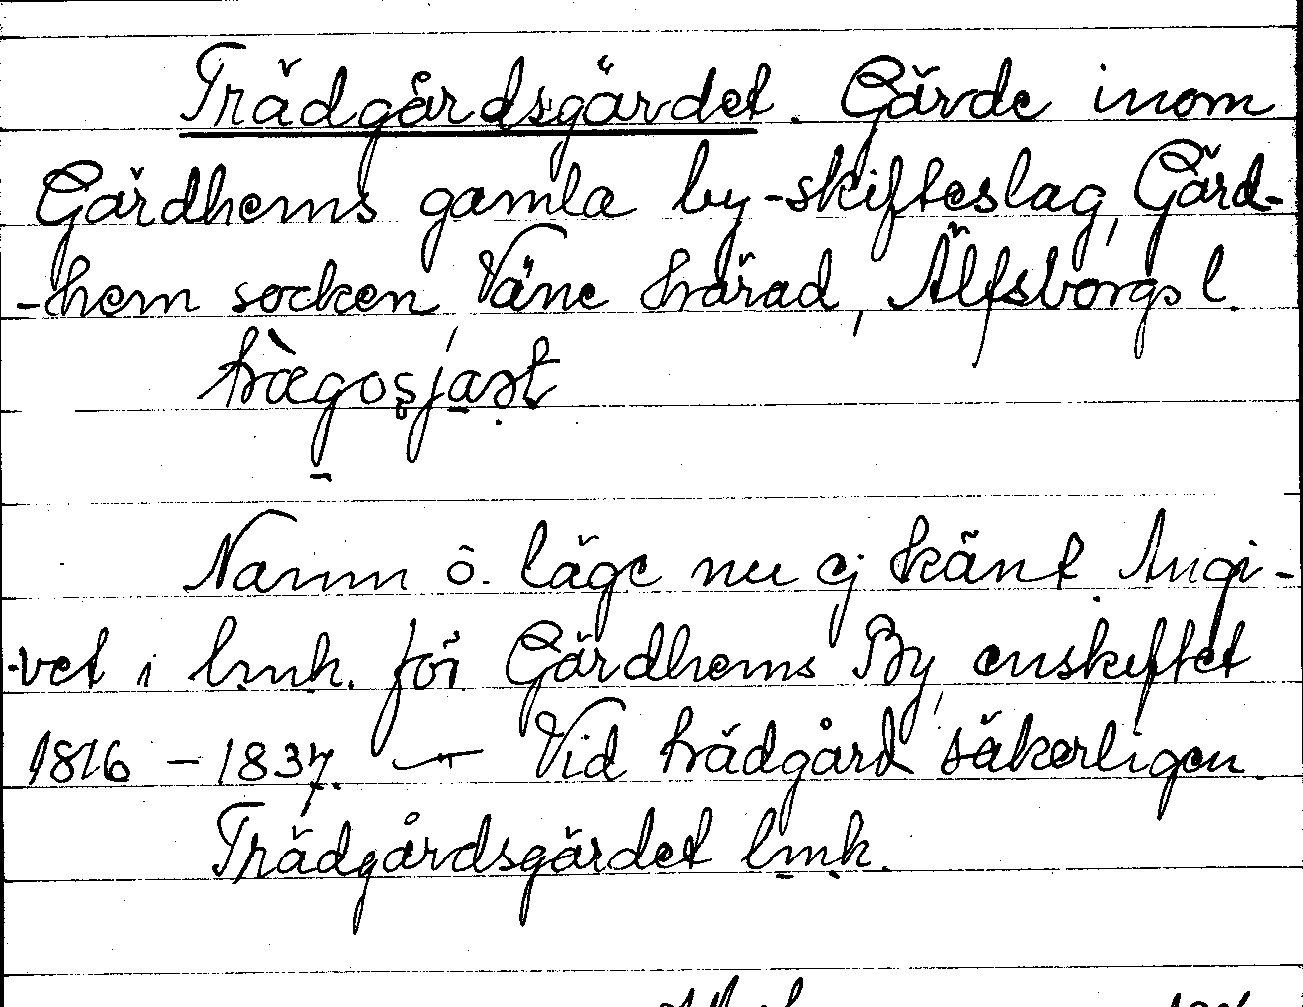 Trädgårdsgärdet. Gärde inom
Gärdhems gamla by-skifteslag, Gärd-
-hem socken, Väne härad, Älfsborgs l.
Namn o. läge nu ej känt. Angi-
-vet i lmk. för Gärdhems By, enskiftet
1816 - 1837. — Vid trädgård säkerligen.
Trädgårdsgärdet lmk.